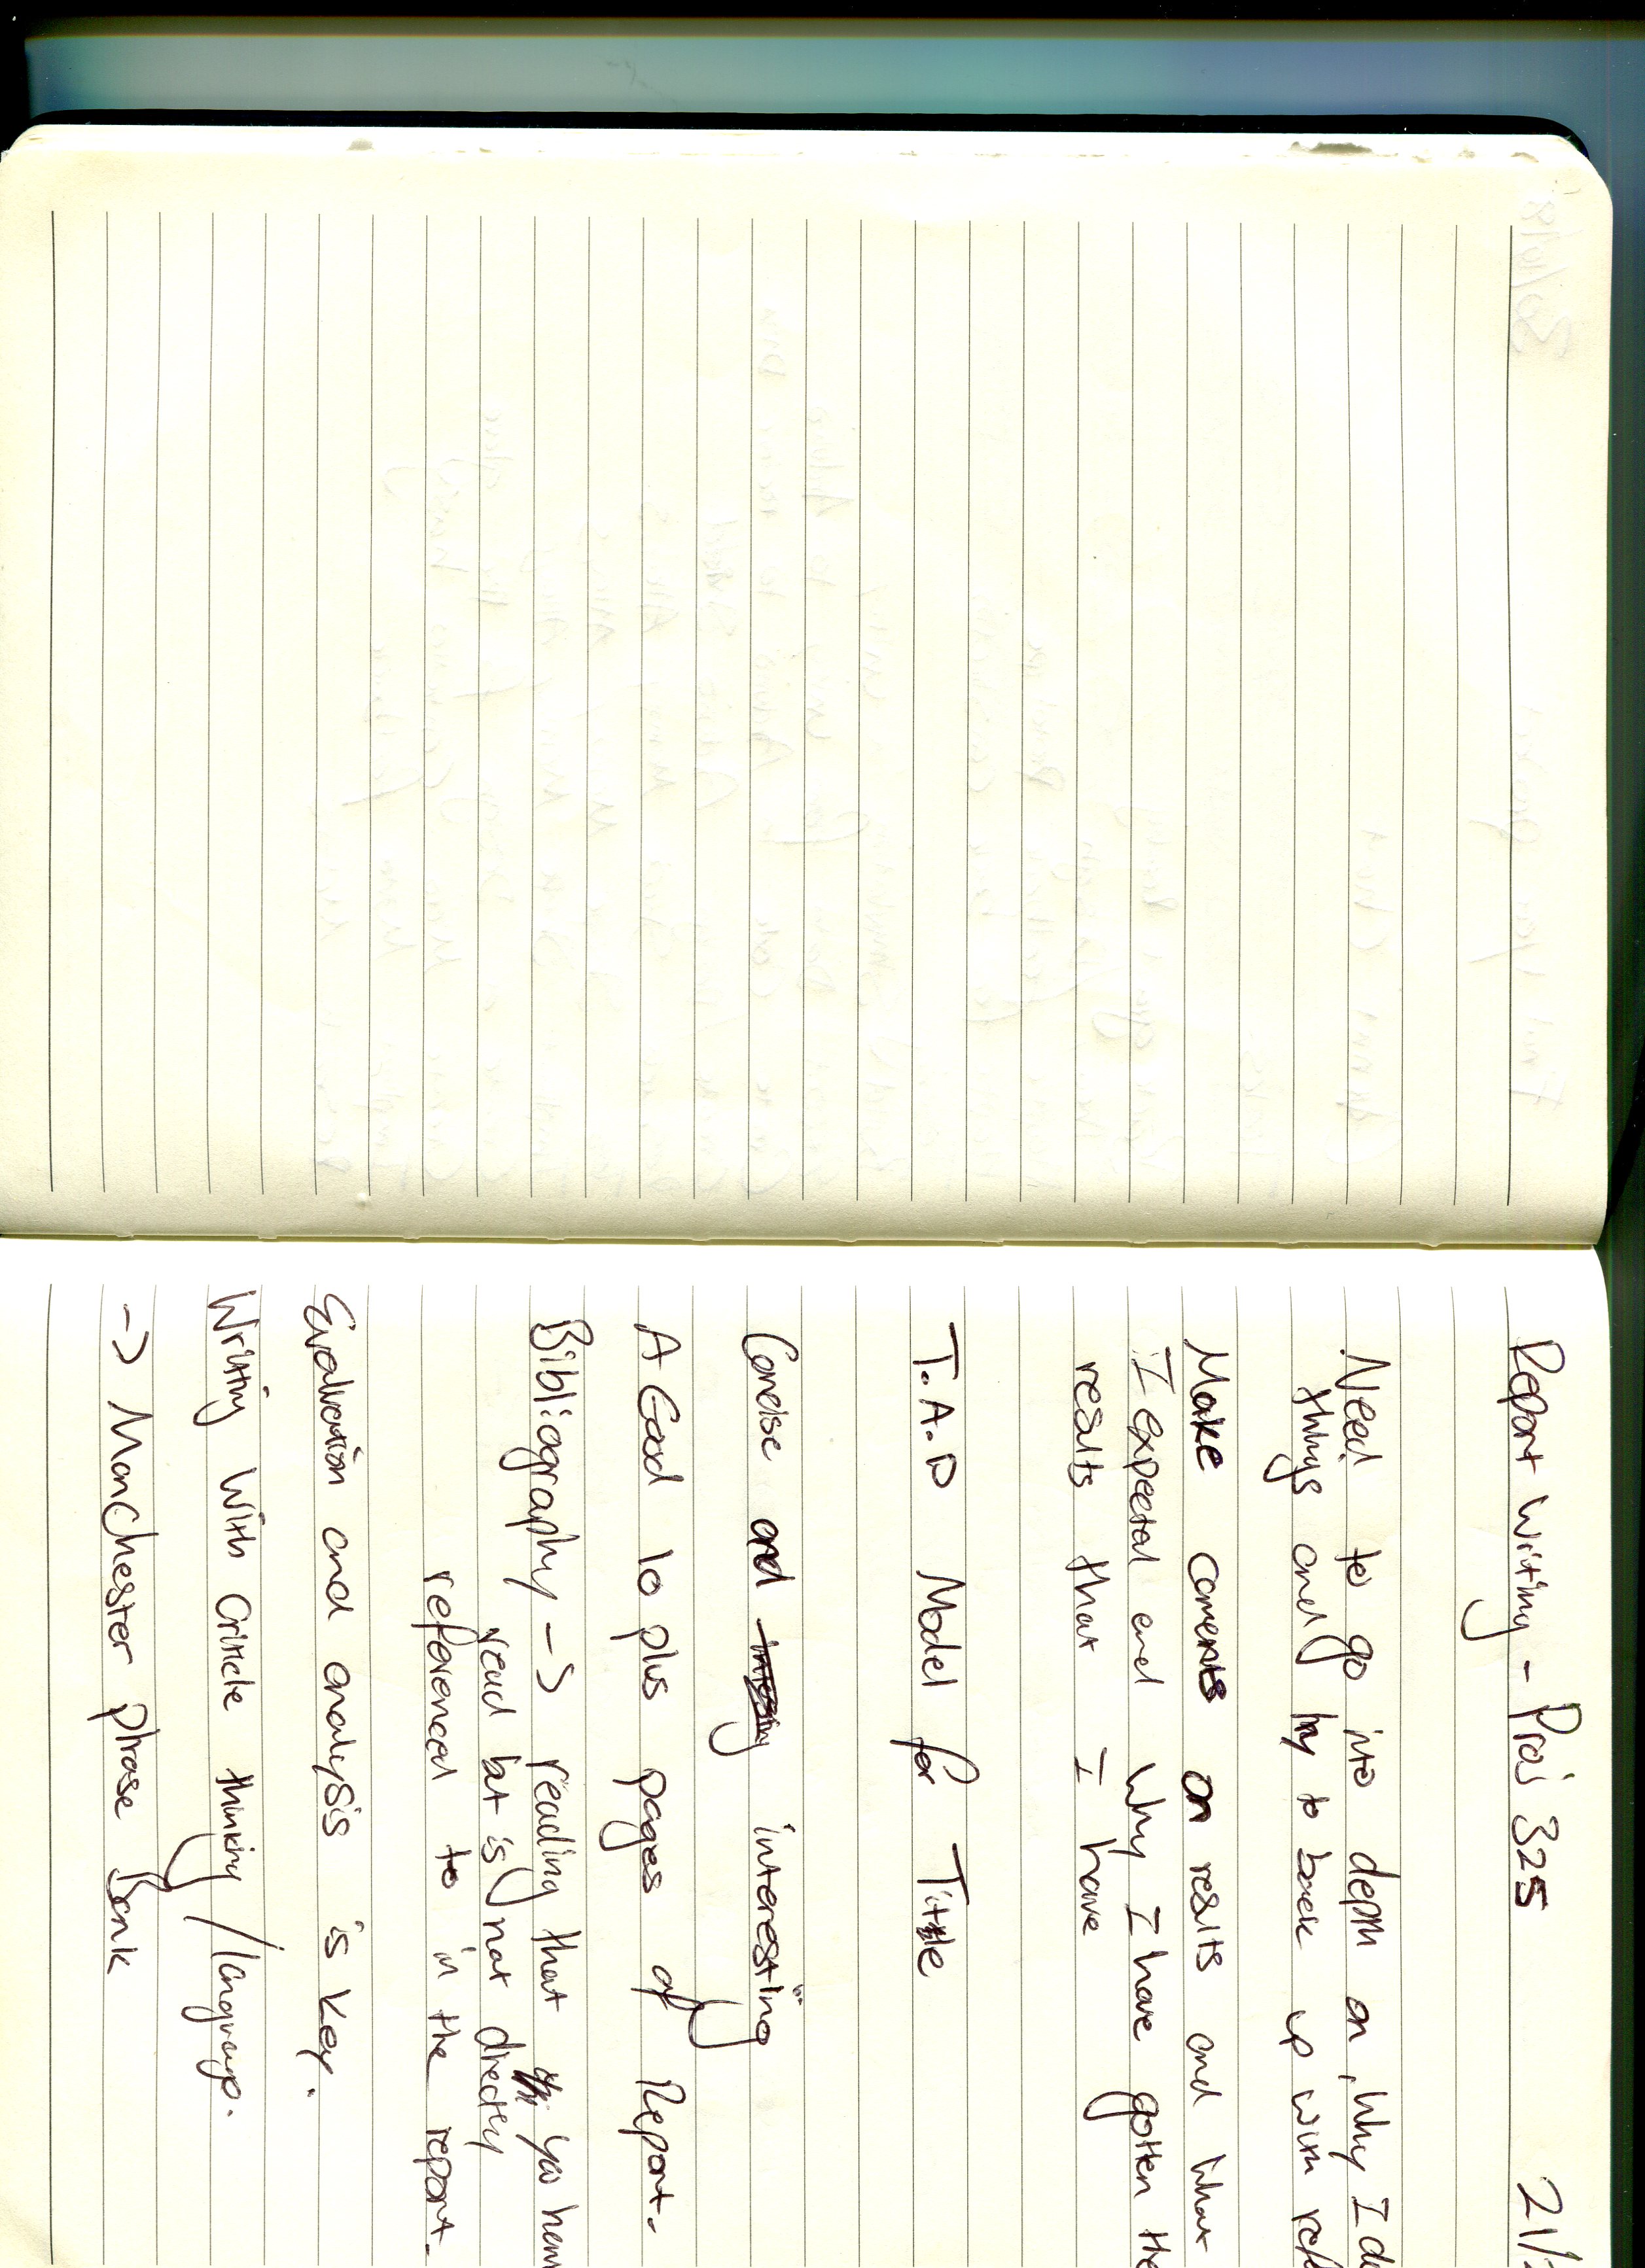 Report writing - Proj 325 21/
Need to go into depth on, Why I do
things and try to back up with refe
Make coments on results and what
I expected and why I have gotten the
results that I have
T.A.D Model for Title
Concise and interesting
A Good 10 plus pages of Report.
Bibliography -> reading that you have
read but is not directly
referenced to in the report.
Evaluation and analysis is key.
Writing with criticle thinking/language.
-> Manchester phrase bank